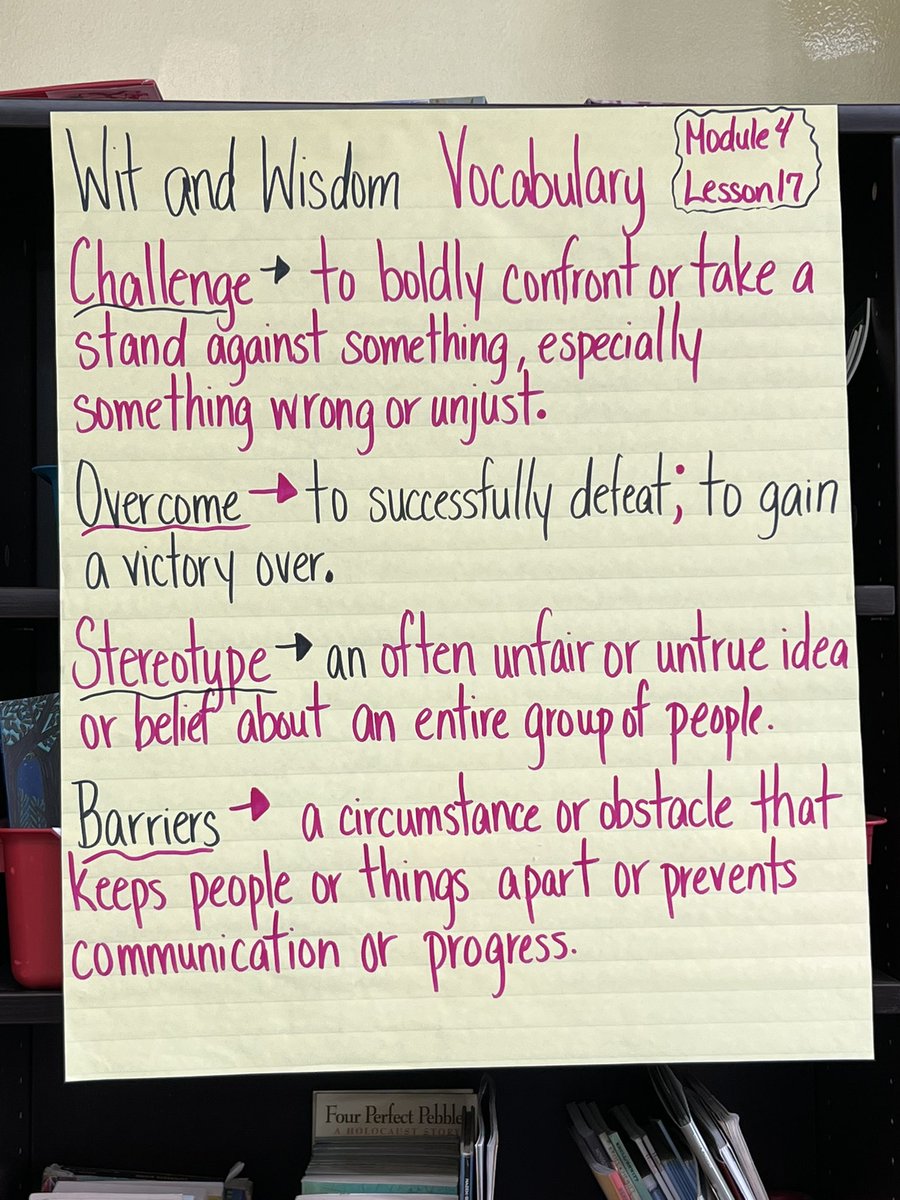 Wit and Wisdom Vocabulary
Module 4
Lesson 17
Challenge → to boldly confront or take a
stand against something, especially
something wrong or unjust.
Overcome → to successfully defeat; to gain
a victory over.
Stereotype → an often unfair or untrue idea
or belief about an entire group of people.
Barriers → a circumstance or obstacle that
keeps people or things apart or prevents
communication or progress.
Four Perfect Pebble
A HOLOCAUST STORY